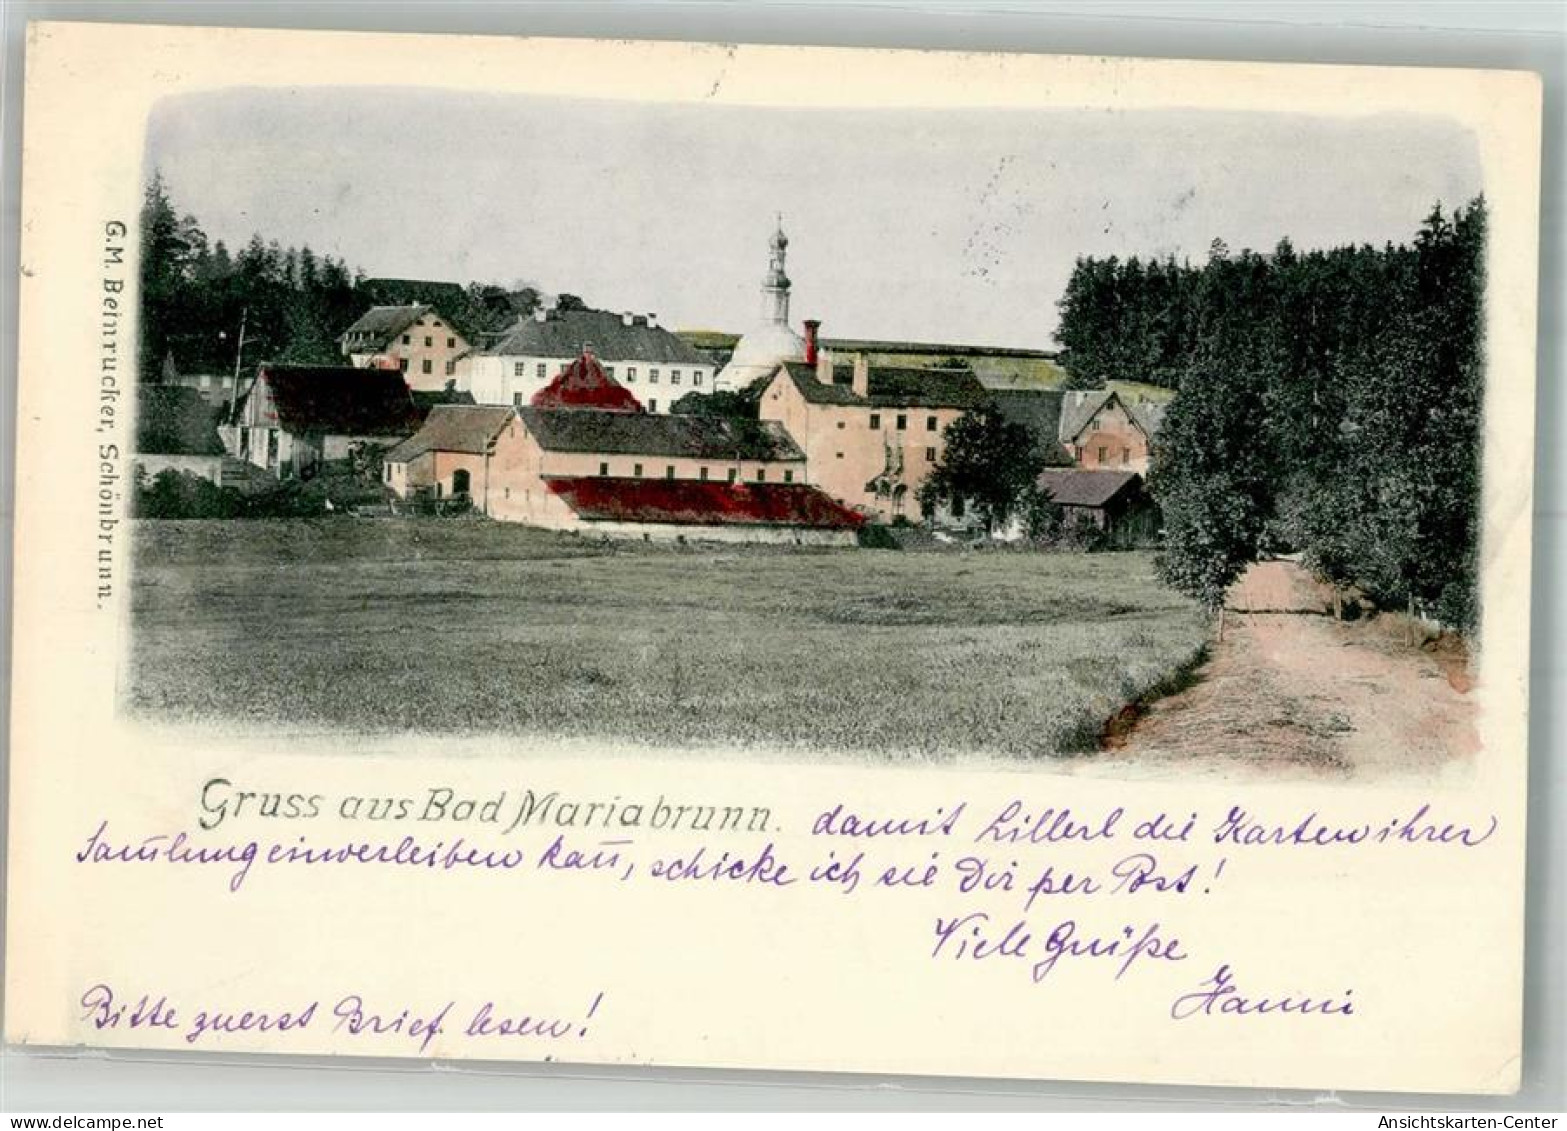 G.M. Beinrucker, Schönbrunn.
Gruss aus Bad Mariabrunn. damit Lillerl die Karten ihrer
Sam̄lung einverleiben kan̄, schicke ich sie Dir per Post!
Viele Grüße
Hanni
Bitte zuerst Brief lesen!
delcampe.net
Ansichtskarten-Center